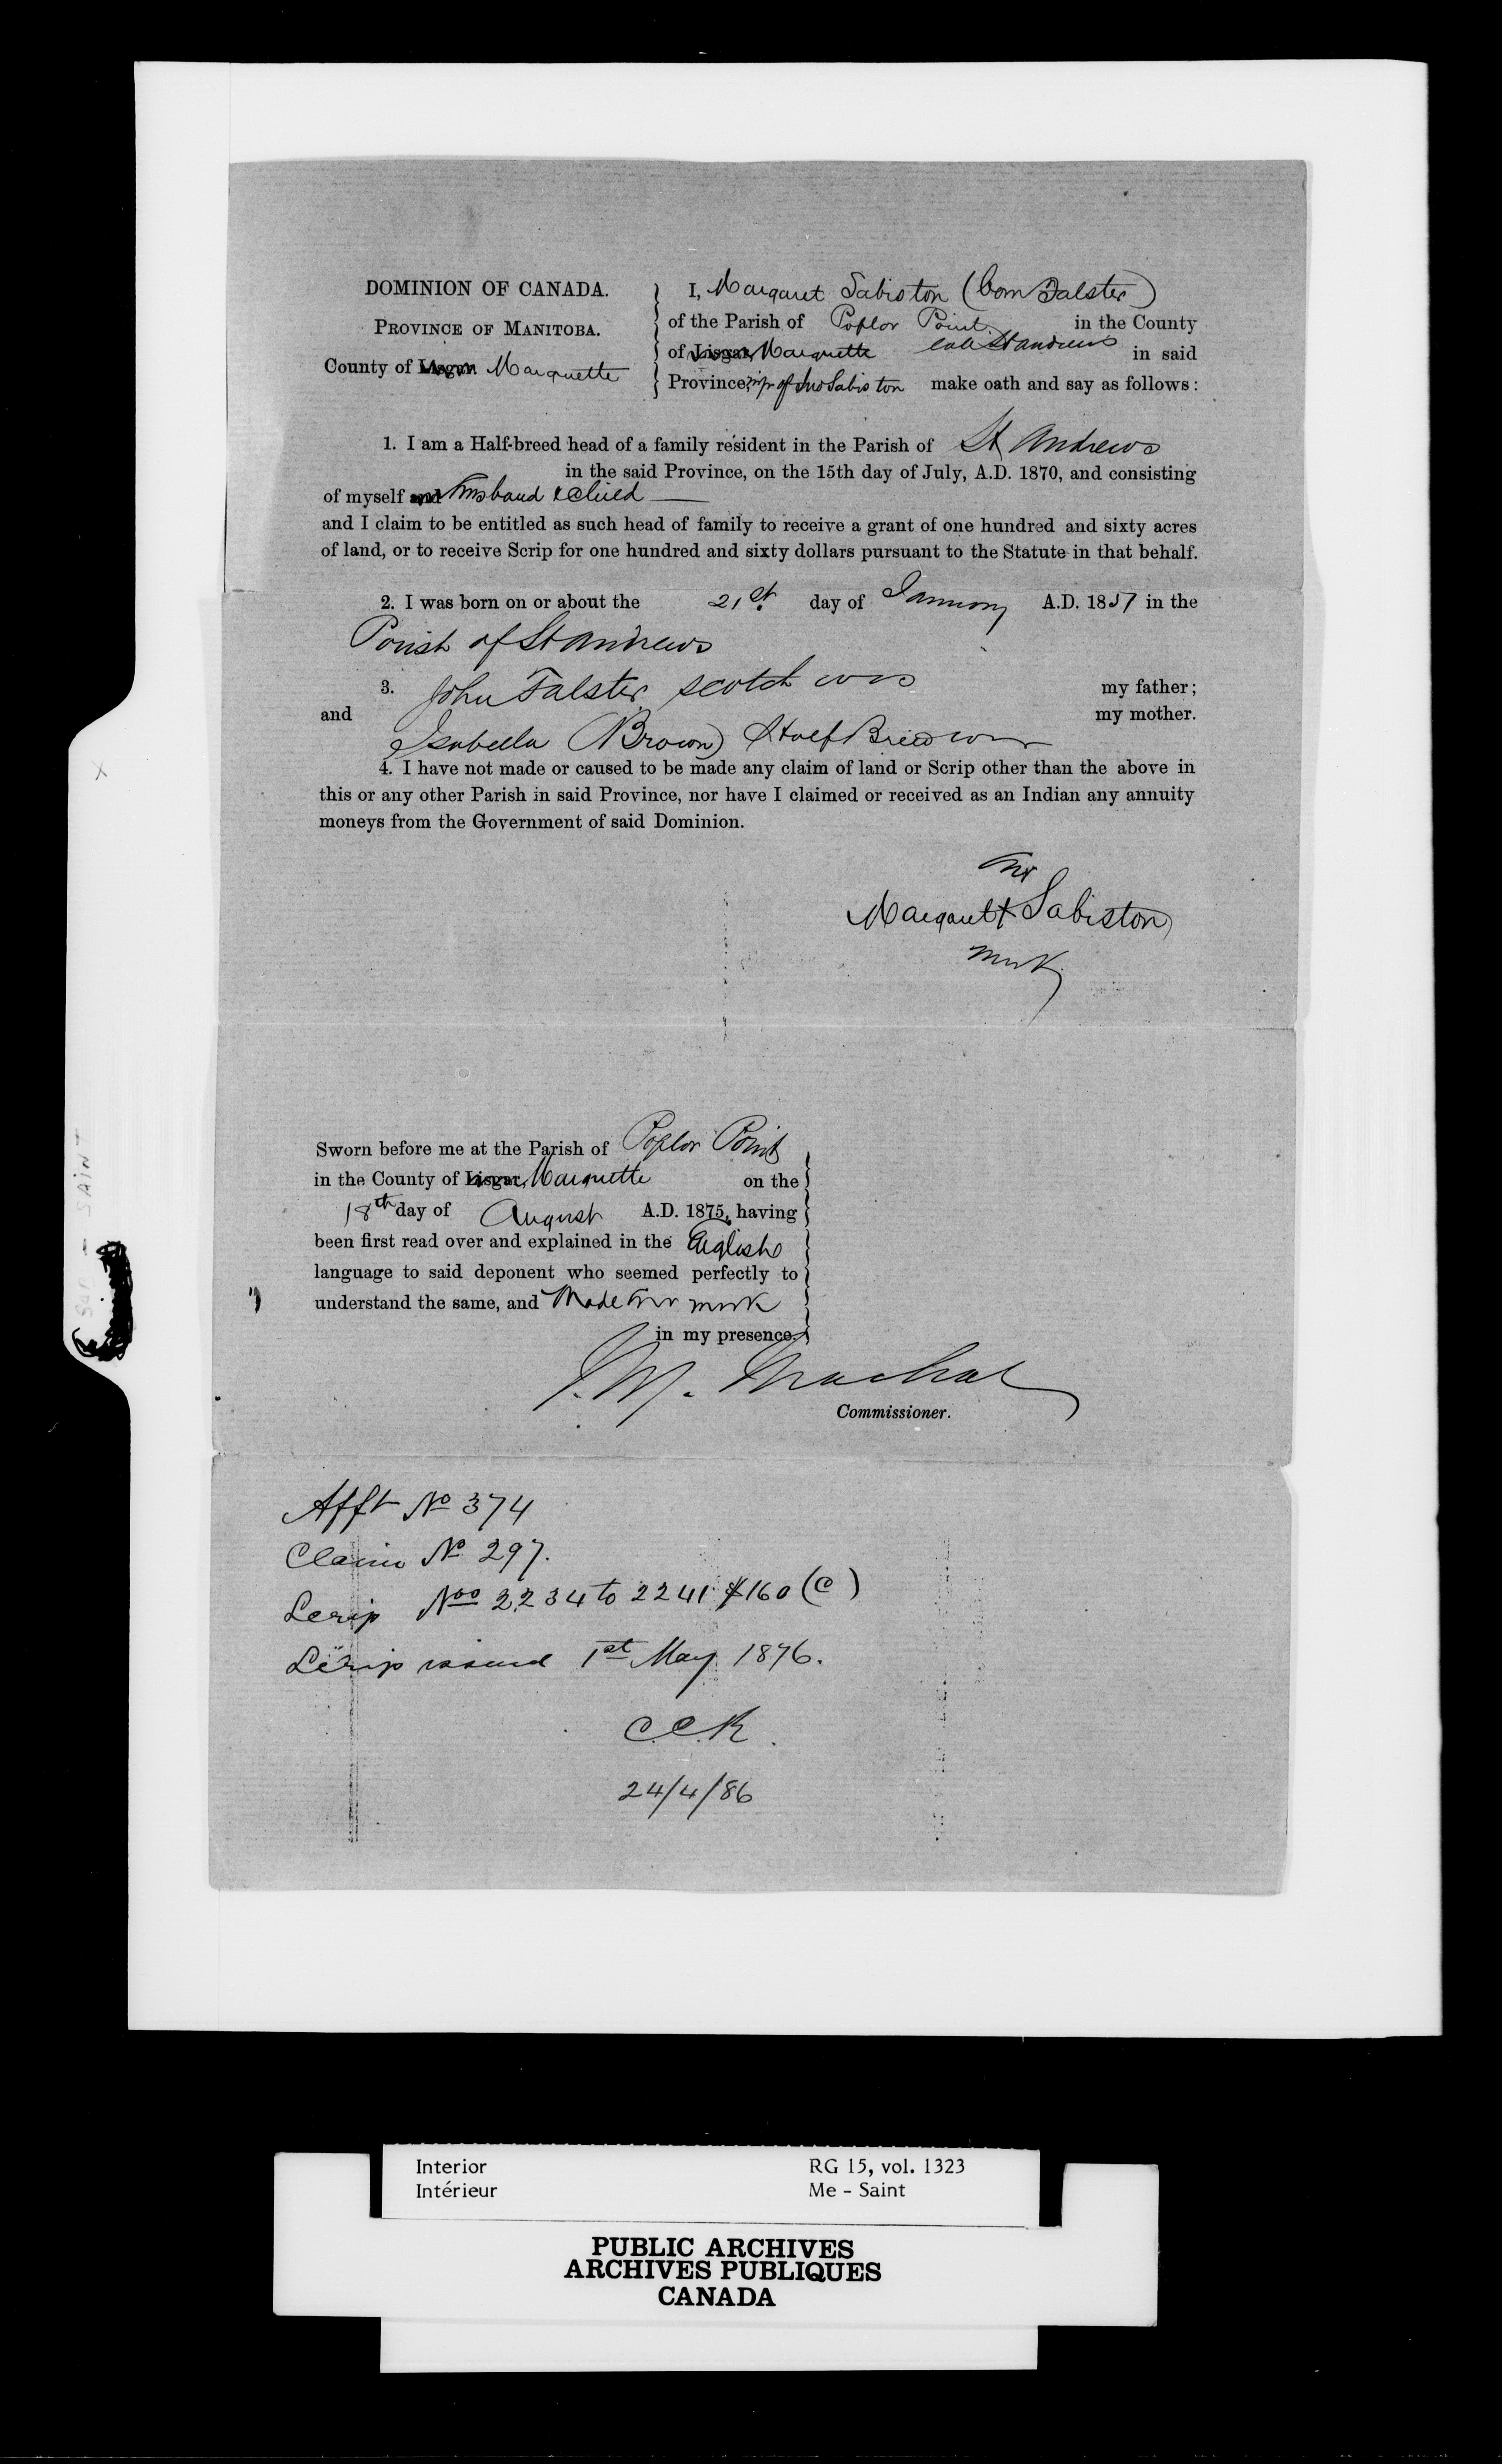 DOMINION OF CANADA.
PROVINCE OF MANITOBA.
County of Lisgar. Marquette
I, Margaret Sabiston (born Falster)
of the Parish of Poplar Point in the County
of Lisgar, Marquette late St Andrews in said
Province, wife of Jno Sabiston make oath and say as follows:
1. I am a Half-breed head of a family resident in the Parish of St Andrews
in the said Province, on the 15th day of July, A.D. 1870, and consisting
of myself and husband & child
and I claim to be entitled as such head of family to receive a grant of one hundred and sixty acres
of land, or to receive Scrip for one hundred and sixty dollars pursuant to the Statute in that behalf.
2. I was born on or about the 21st day of January A.D. 1851 in the
Parish of St Andrews
3. John Falster scotch was my father;
and my mother.
Isabella (Brown) Half Breed was
4. I have not made or caused to be made any claim of land or Scrip other than the above in
this or any other Parish in said Province, nor have I claimed or received as an Indian any annuity
moneys from the Government of said Dominion.
her
Margaret X Sabiston
mark
Sworn before me at the Parish of Poplar Point
in the County of Lisgar, Marquette on the
18th day of August A.D. 1875, having
been first read over and explained in the English
language to said deponent who seemed perfectly to
understand the same, and Made her mark
in my presence.
Commissioner.
Afft No 374
Claim No 297.
Scrip Nos 2234 to 2241 $160 (C)
Scrip issued 1st May 1876.
24/4/86
SAINT
Interior
Intérieur
RG 15, vol. 1323
Me - Saint
PUBLIC ARCHIVES
ARCHIVES PUBLIQUES
CANADA